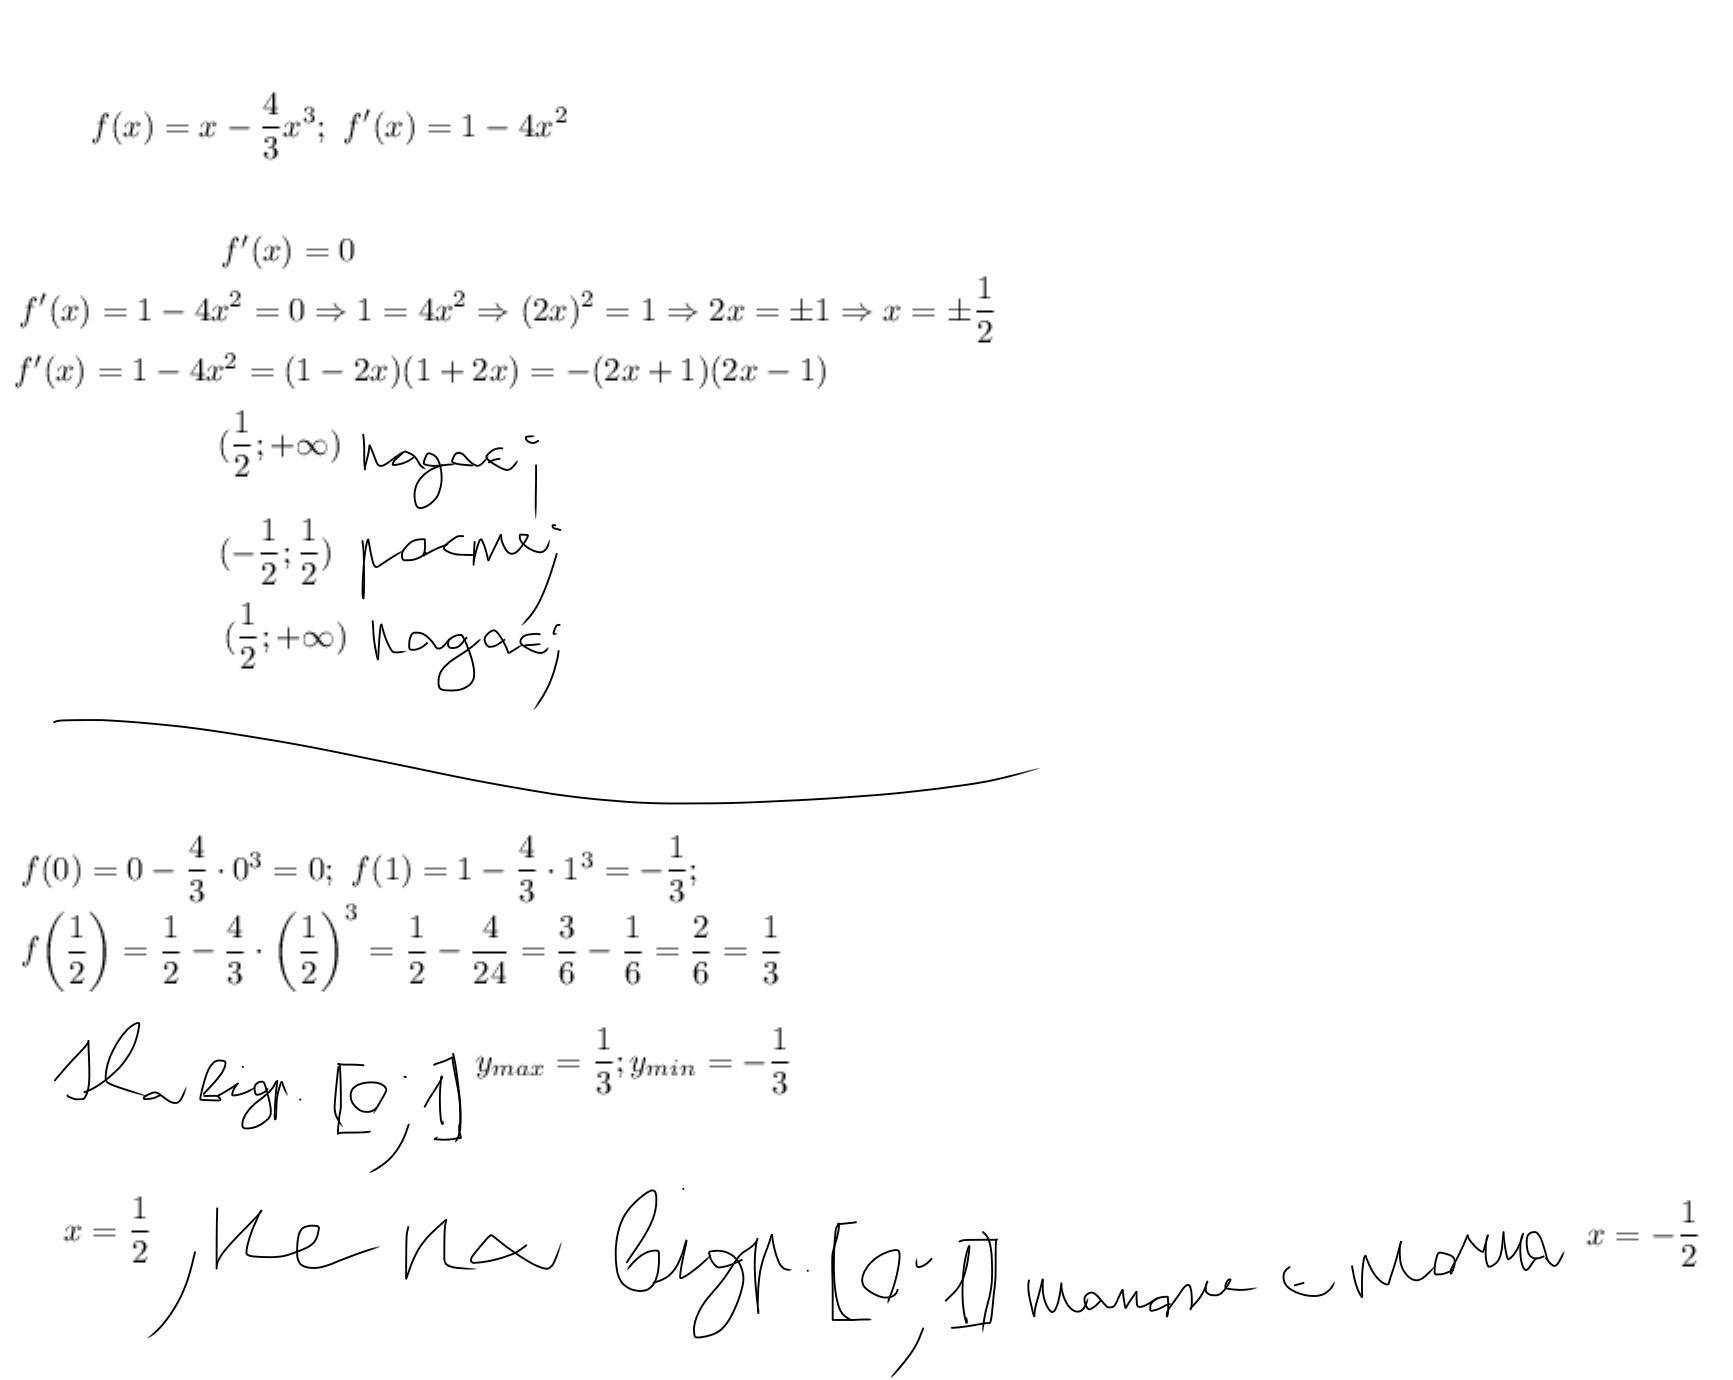 f(x) = x − 4/3 x³; f′(x) = 1 − 4x²
f′(x) = 0
f′(x) = 1 − 4x² = 0 ⇒ 1 = 4x² ⇒ (2x)² = 1 ⇒ 2x = ±1 ⇒ x = ±1/2
f′(x) = 1 − 4x² = (1 − 2x)(1 + 2x) = −(2x + 1)(2x − 1)
(1/2; +∞) падає;
(−1/2; 1/2) росте;
(1/2; +∞) падає;
f(0) = 0 − 4/3 · 0³ = 0; f(1) = 1 − 4/3 · 1³ = −1/3;
f(1/2) = 1/2 − 4/3 · (1/2)³ = 1/2 − 4/24 = 3/6 − 1/6 = 2/6 = 1/3
На відр. [0; 1] y_max = 1/3; y_min = −1/3
x = 1/2, не на відр. [0; 1] також є точка x = −1/2